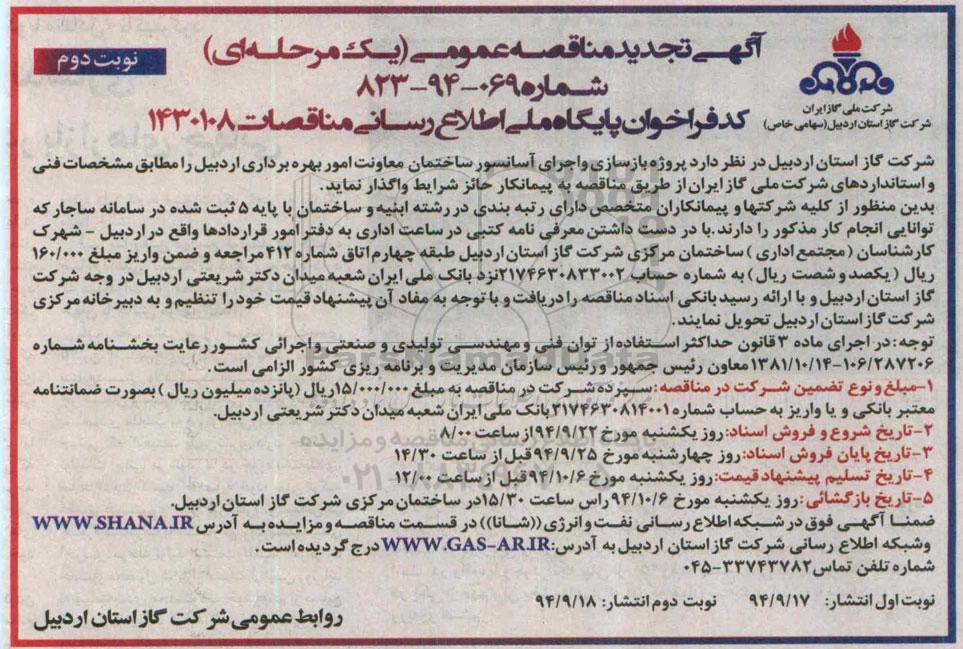 آگهی تجدید مناقصه عمومی (یک مرحله‌ای)
نوبت دوم
شماره ۰۶۹-۹۴-۸۲۳
کد فراخوان پایگاه ملی اطلاع رسانی مناقصات ۱۴۳۰۱۰۸
شرکت ملی گاز ایران
شرکت گاز استان اردبیل (سهامی خاص)
شرکت گاز استان اردبیل در نظر دارد پروژه بازسازی و اجرای آسانسور ساختمان معاونت امور بهره برداری اردبیل را مطابق مشخصات فنی
و استانداردهای شرکت ملی گاز ایران از طریق مناقصه به پیمانکار حائز شرایط واگذار نماید.
بدین منظور از کلیه شرکتها و پیمانکاران متخصص دارای رتبه بندی در رشته ابنیه و ساختمان با پایه ۵ ثبت شده در سامانه ساجار که
توانایی انجام کار مذکور را دارند .با در دست داشتن معرفی نامه کتبی در ساعت اداری به دفتر امور قراردادها واقع در اردبیل - شهرک
کارشناسان (مجتمع اداری) ساختمان مرکزی شرکت گاز استان اردبیل طبقه چهارم اتاق شماره ۴۱۲ مراجعه و ضمن واریز مبلغ ۱۶۰/۰۰۰
ریال (یکصد و شصت ریال) به شماره حساب ۲۱۷۴۶۳۰۸۳۳۰۰۲ نزد بانک ملی ایران شعبه میدان دکتر شریعتی اردبیل در وجه شرکت
گاز استان اردبیل و با ارائه رسید بانکی اسناد مناقصه را دریافت و با توجه به مفاد آن پیشنهاد قیمت خود را تنظیم و به دبیرخانه مرکزی
شرکت گاز استان اردبیل تحویل نمایند.
توجه: در اجرای ماده ۳ قانون حداکثر استفاده از توان فنی و مهندسی تولیدی و صنعتی و اجرائی کشور رعایت بخشنامه شماره
۱۰۶/۲۸۷۲۰۶-۱۳۸۱/۱۰/۱۴ معاون رئیس جمهور و رئیس سازمان مدیریت و برنامه ریزی کشور الزامی است.
۱-مبلغ و نوع تضمین شرکت در مناقصه: سپرده شرکت در مناقصه به مبلغ ۱۵/۰۰۰/۰۰۰ ریال (پانزده میلیون ریال) بصورت ضمانتنامه
معتبر بانکی و یا واریز به حساب شماره ۲۱۷۴۶۳۰۸۱۴۰۰۱ بانک ملی ایران شعبه میدان دکتر شریعتی اردبیل.
۲-تاریخ شروع و فروش اسناد: روز یکشنبه مورخ ۹۴/۹/۲۲ از ساعت ۸/۰۰
۳-تاریخ پایان فروش اسناد: روز چهارشنبه مورخ ۹۴/۹/۲۵ قبل از ساعت ۱۴/۳۰
۴-تاریخ تسلیم پیشنهاد قیمت: روز یکشنبه مورخ ۹۴/۱۰/۶ قبل از ساعت ۱۲/۰۰
۵-تاریخ بازگشائی: روز یکشنبه مورخ ۹۴/۱۰/۶ راس ساعت ۱۵/۳۰ در ساختمان مرکزی شرکت گاز استان اردبیل.
ضمنا آگهی فوق در شبکه اطلاع رسانی نفت و انرژی ((شانا)) در قسمت مناقصه و مزایده به آدرس WWW.SHANA.IR
وشبکه اطلاع رسانی شرکت گاز استان اردبیل به آدرس: WWW.GAS-AR.IR درج گردیده است.
شماره تلفن تماس ۳۳۷۴۳۷۸۲-۰۴۵
نوبت اول انتشار: ۹۴/۹/۱۷ نوبت دوم انتشار: ۹۴/۹/۱۸
روابط عمومی شرکت گاز استان اردبیل